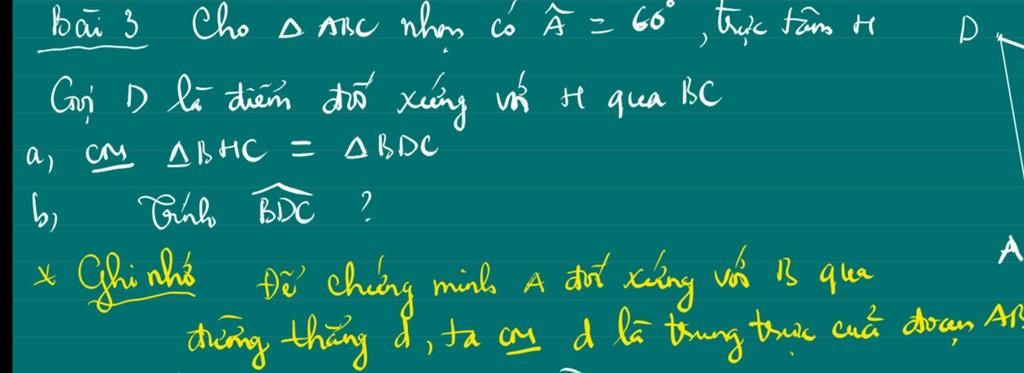 Bài 3 Cho Δ ABC nhọn có Â = 60°, trực tâm H D
Gọi D là điểm đối xứng với H qua BC
a, CM ΔBHC = ΔBDC
b, Tính BDC ?
A
* Ghi nhớ Để chứng minh A đối xứng với B qua
đường thẳng d, ta CM d là trung trực của đoạn AB